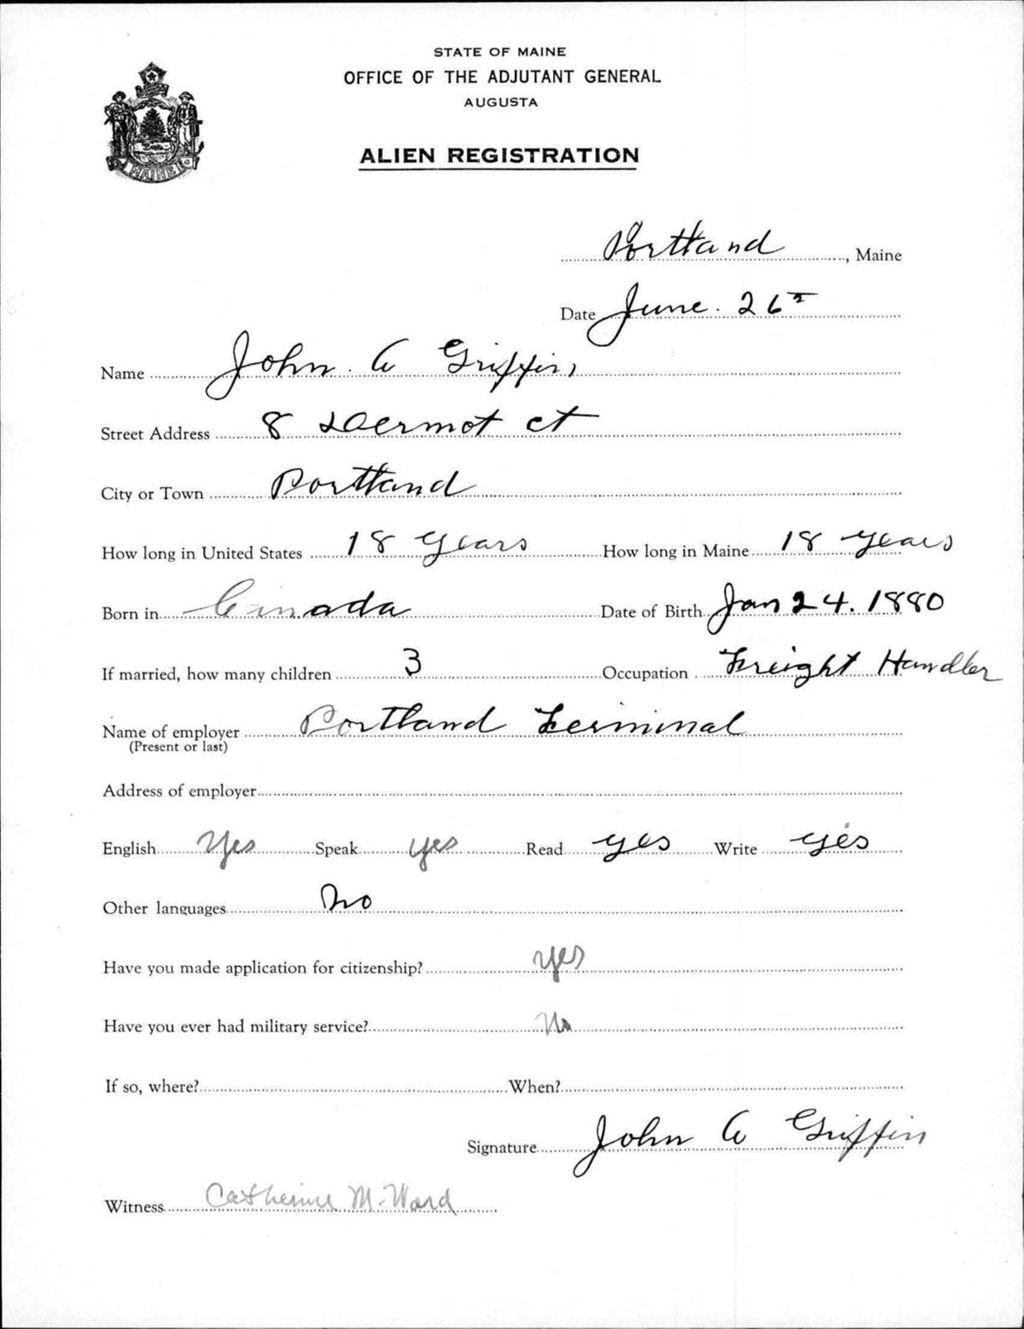 STATE OF MAINE
OFFICE OF THE ADJUTANT GENERAL
AUGUSTA
ALIEN REGISTRATION
MAINE
Portland, Maine
Date June. 26
Name John. A Griffin
Street Address 8 Dermot ct
City or Town Portland
How long in United States 18 years How long in Maine 18 years
Born in Canada Date of Birth Jan 24. 1880
If married, how many children 3 Occupation Freight Handler
Name of employer Portland Terminal
(Present or last)
Address of employer
English Yes Speak yes Read yes Write yes
Other languages No
Have you made application for citizenship? yes
Have you ever had military service? No
If so, where? When?
Signature John A Griffin
Witness Catherine M. Ward